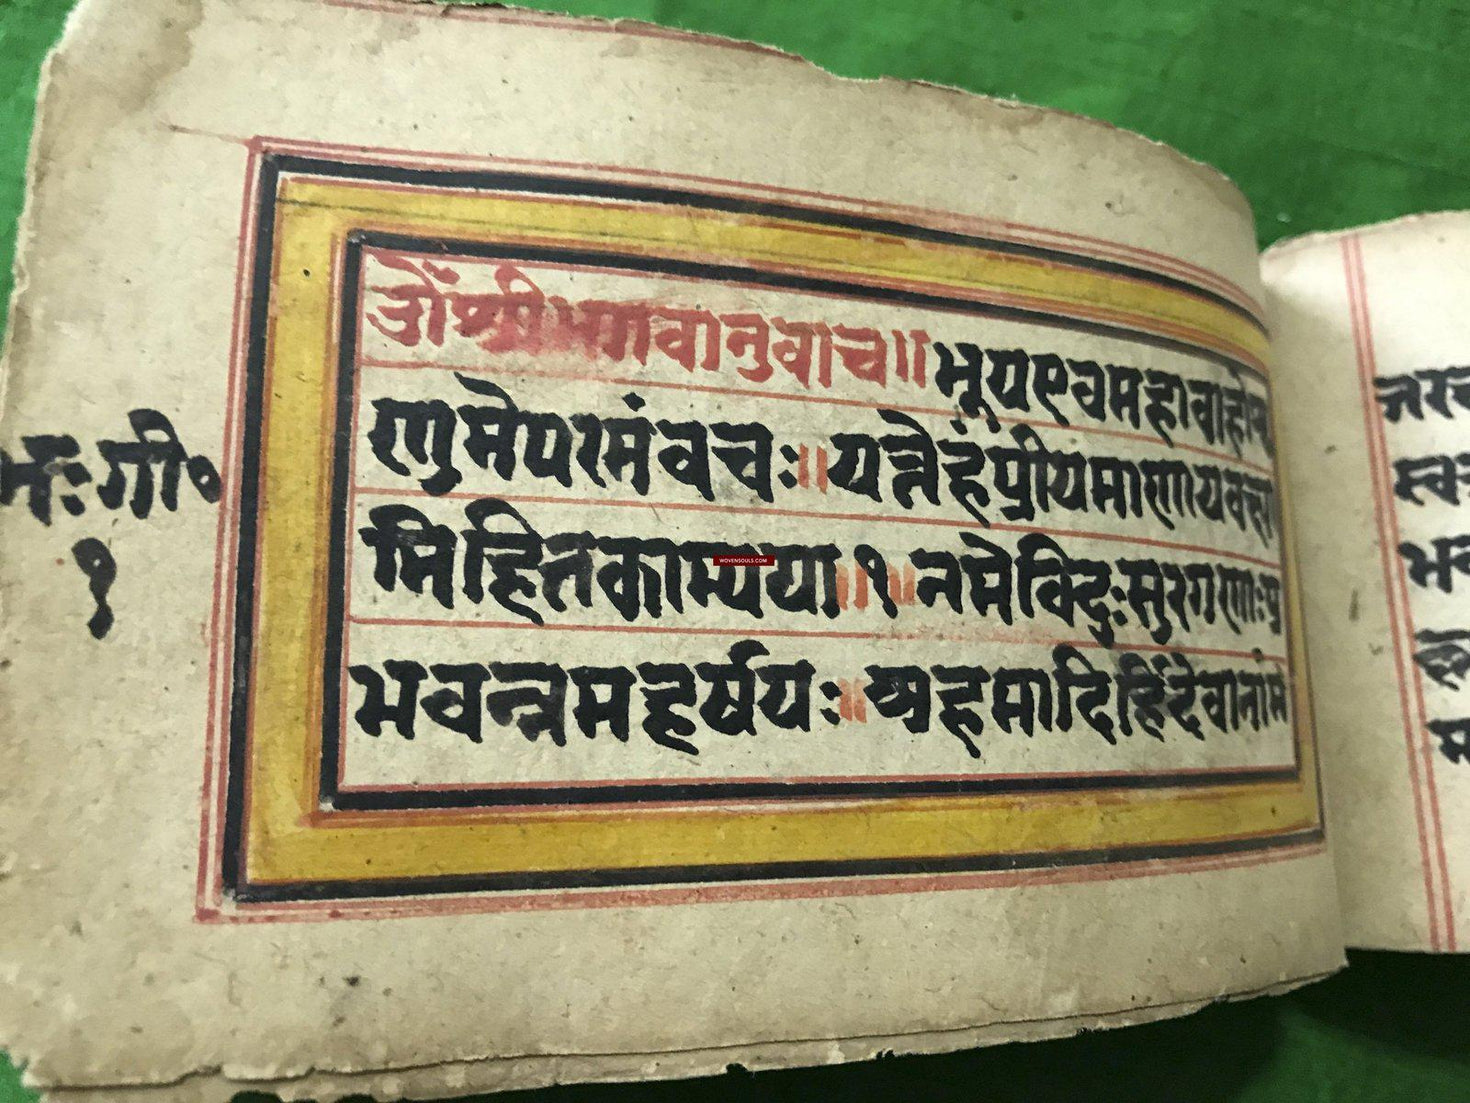 ॐश्रीभगवानुवाच॥ भूयएवमहावाहोशृ
णुमेपरमंवचः॥ यत्तेहंप्रीयमाणायवक्ष्या
मिहितकाम्यया॥१॥ नमेविदुःसुरगणाःप्र
भवन्नमहर्षयः॥ अहमादिर्हिदेवानांम
भ॰गी॰
१
WOVENSOULS.COM